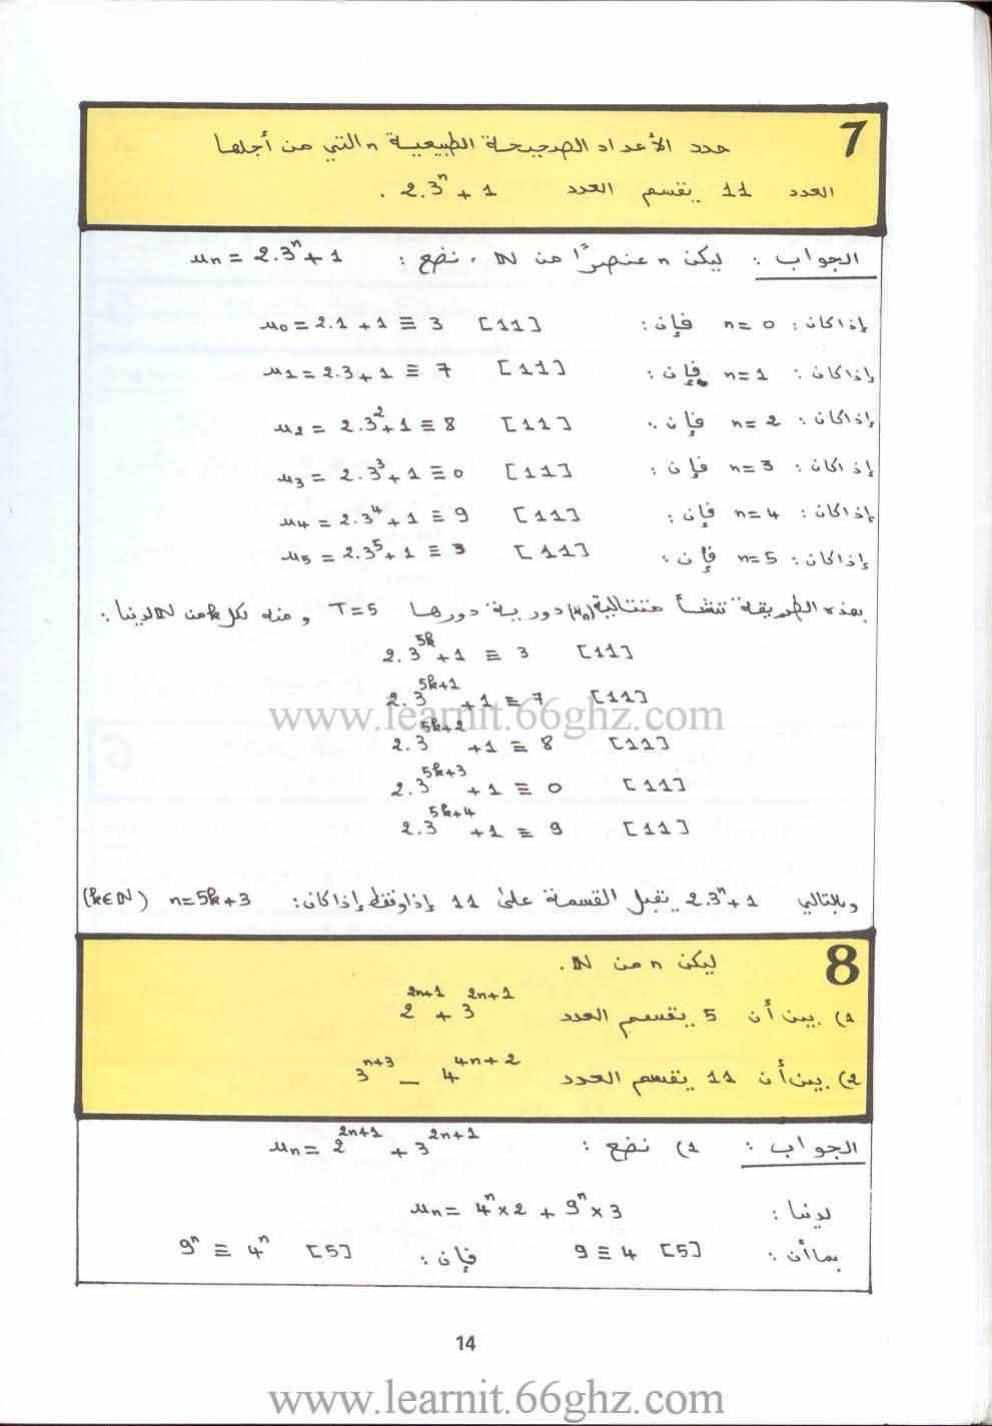 7
حدد الأعداد الصحيحة الطبيعية n التي من أجلها
العدد 11 يقسم العدد 2.3ⁿ + 1 .
الجواب : ليكن n عنصرًا من ℕ ، نضع : uₙ = 2.3ⁿ + 1
إذا كان : n = 0 فإن : u₀ = 2.1 + 1 ≡ 3 [11]
إذا كان : n = 1 فإن : u₁ = 2.3 + 1 ≡ 7 [11]
إذا كان : n = 2 فإن : u₂ = 2.3² + 1 ≡ 8 [11]
إذا كان : n = 3 فإن : u₃ = 2.3³ + 1 ≡ 0 [11]
إذا كان : n = 4 فإن : u₄ = 2.3⁴ + 1 ≡ 9 [11]
إذا كان : n = 5 فإن : u₅ = 2.3⁵ + 1 ≡ 3 [11]
بهذه الطريقة تنشأ متتالية (uₙ) دورية دورها T = 5 و منه لكل k من ℕ لدينا :
2.3^{5k} + 1 ≡ 3 [11]
2.3^{5k+1} + 1 ≡ 7 [11]
www.learnit.66ghz.com
2.3^{5k+2} + 1 ≡ 8 [11]
2.3^{5k+3} + 1 ≡ 0 [11]
2.3^{5k+4} + 1 ≡ 9 [11]
وبالتالي 2.3ⁿ + 1 يقبل القسمة على 11 إذا وفقط إذا كان : n = 5k + 3 (k ∈ ℕ)
8
ليكن n من ℕ .
1) بين أن 5 يقسم العدد 2^{2n+1} + 3^{2n+1}
2) بين أن 11 يقسم العدد 3^{n+3} − 4^{4n+2}
الجواب : 1) نضع : uₙ = 2^{2n+1} + 3^{2n+1}
لدينا : uₙ = 4ⁿ × 2 + 9ⁿ × 3
بما أن : 9 ≡ 4 [5] فإن : 9ⁿ ≡ 4ⁿ [5]
14
www.learnit.66ghz.com